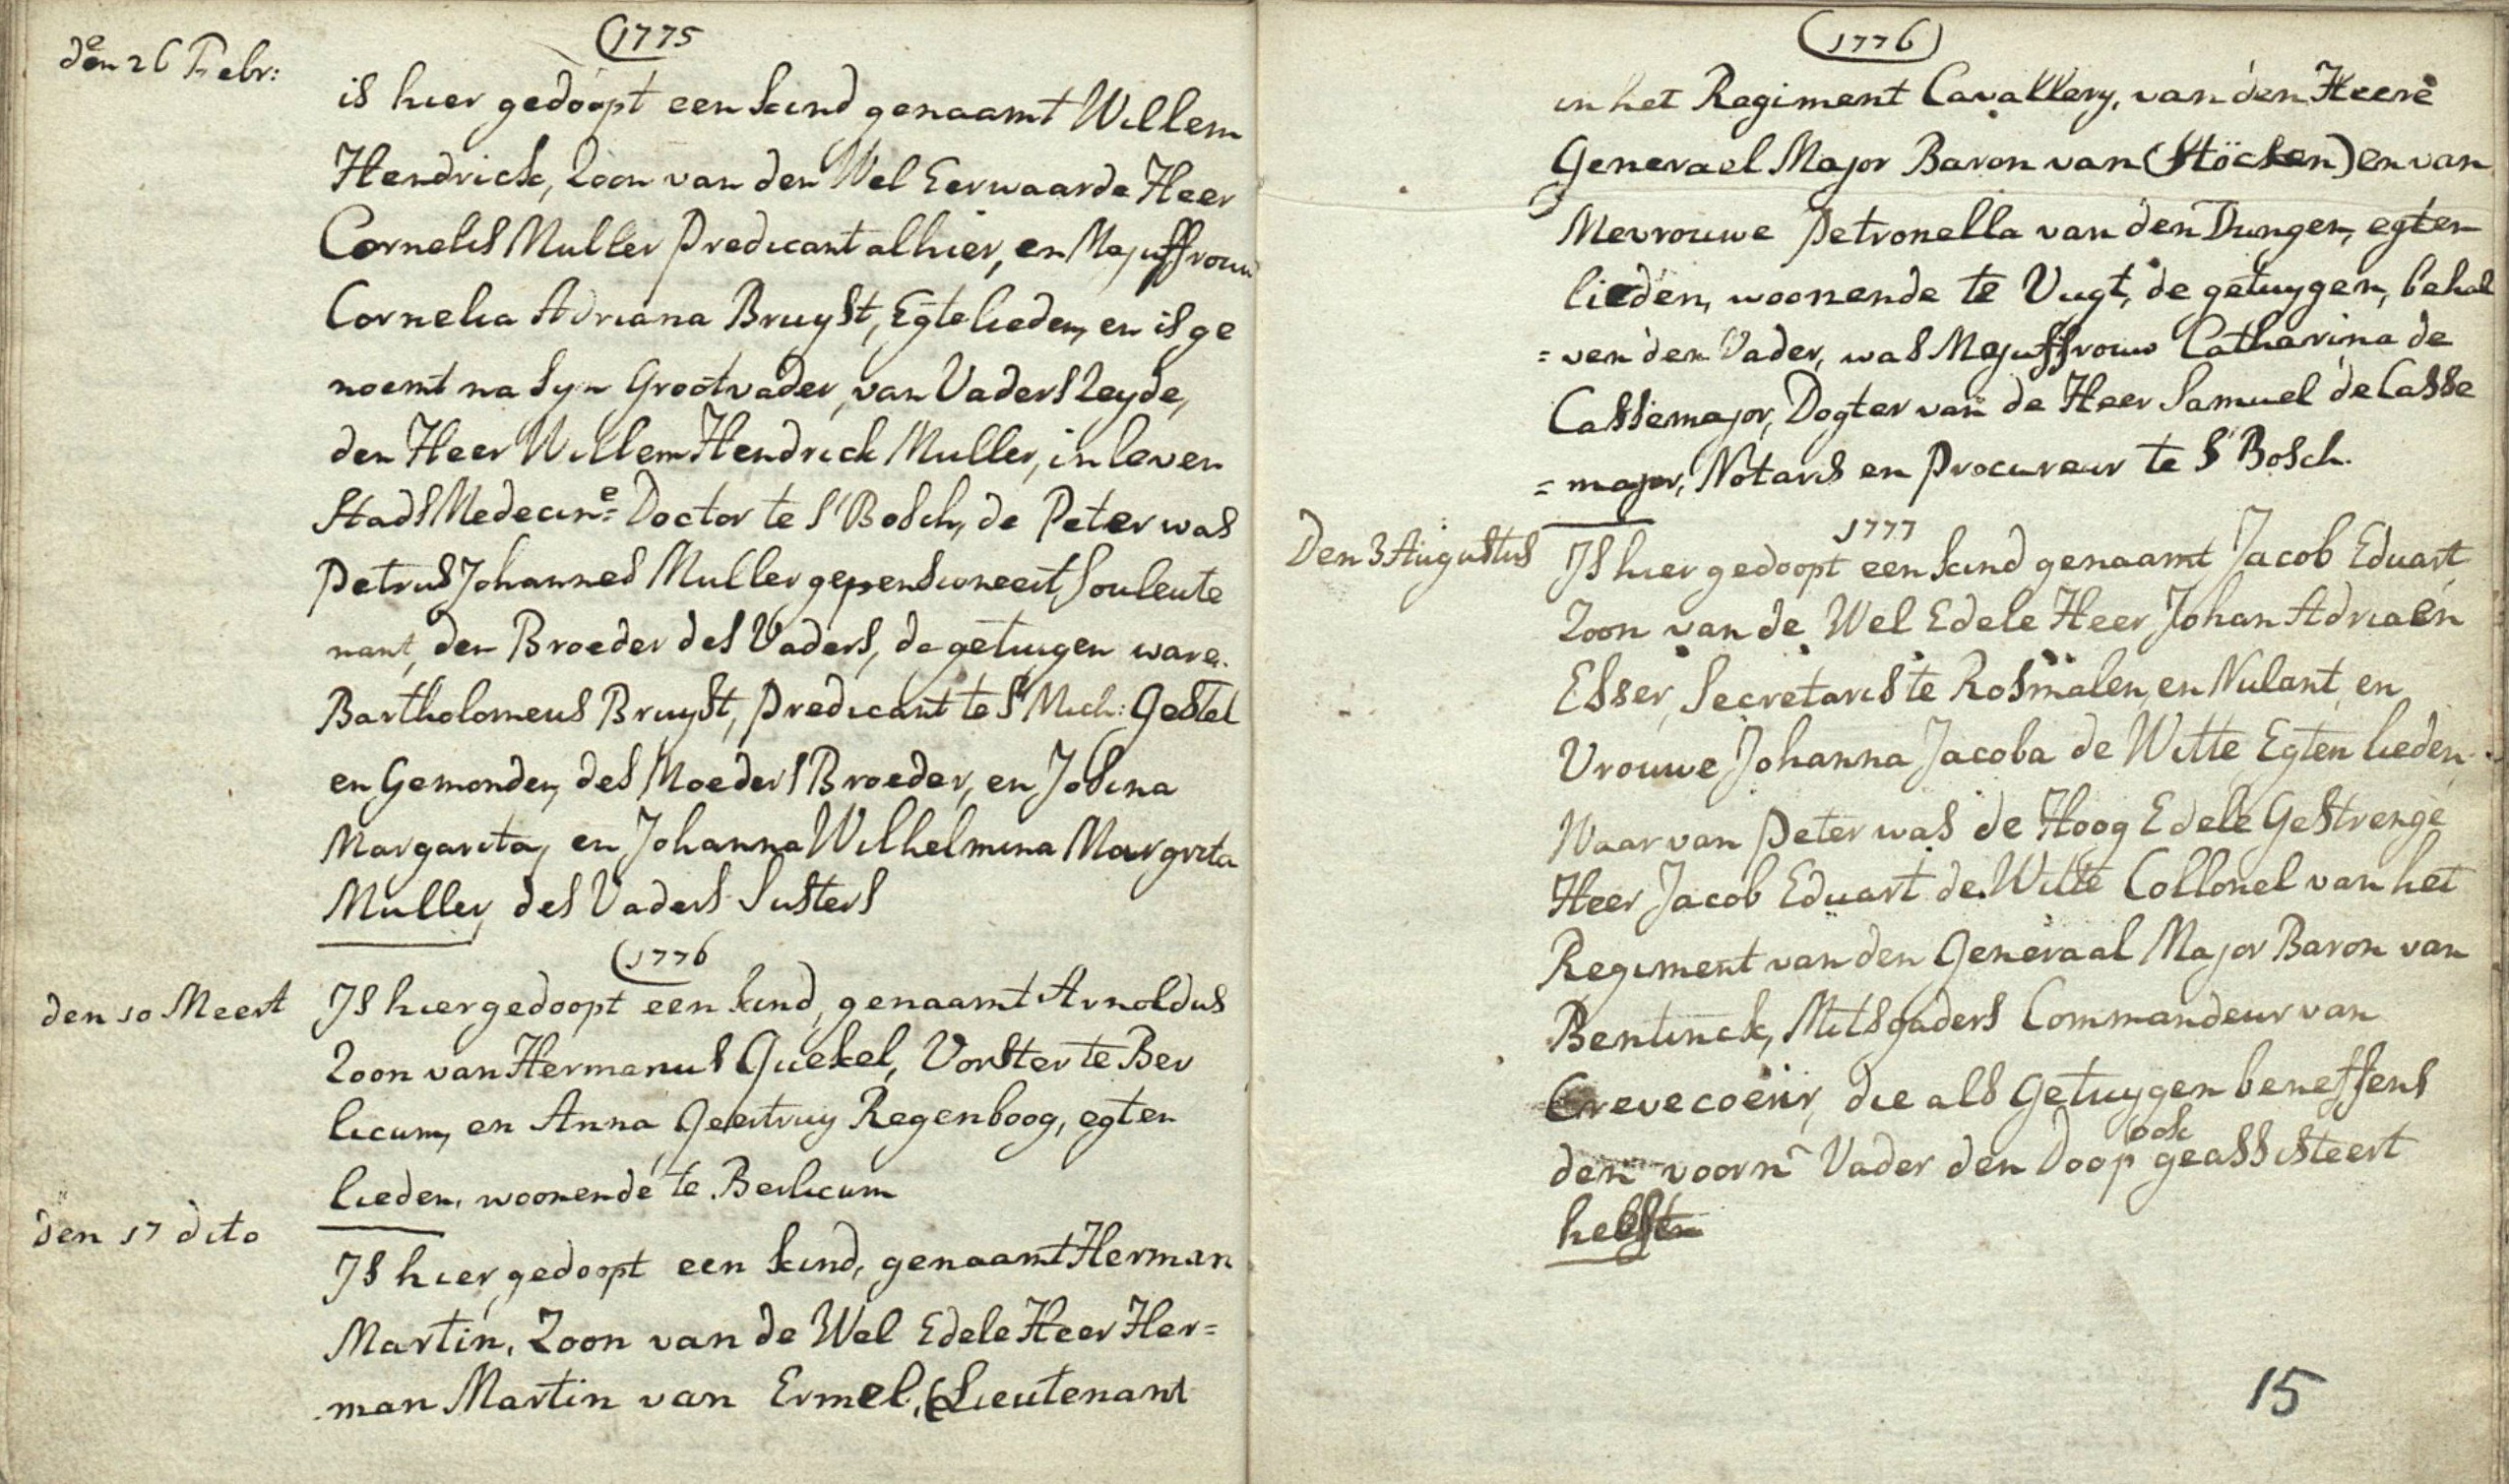 (1775
den 26 Febr:
is hier gedoopt een kind genaamt Willem
Hendrick, Zoon van den Wel Eerwaarde Heer
Cornelis Muller Predicant alhier, en Mejuffrouw
Cornelia Adriana Bruyst, Egtelieden, en is ge
noemt na Syn Grootvader, van Vaders Zeyde,
den Heer Willem Hendrick Muller, in leven
Stads Medecine Doctor te S Bosch, de Peter was
Petrus Johannes Muller gepensioneert Souleute
nant, den Broeder des Vaders, de getuigen ware.
Bartholomeus Bruyst, Predicant te St Mich: Gestel
en Gemonden, des Moeders Broeder, en Josina
Margarita, en Johanna Wilhelmina Margrita
Muller, des Vaders Susters
(1776
den 10 Meert
Is hier gedoopt een kind, genaamt Arnoldus
Zoon van Hermanus Quekel, Vorster te Ber
licum, en Anna Geertruy Regenboog, egten
lieden, woonende te Berlicum
den 17 dito
Is hier gedoopt een kind, genaamt Herman
Martin, Zoon van de Wel Edele Heer Her=
man Martin van Ermel, (Lieutenant
(1776)
in het Regiment Cavallery, van den Heere
Generael Major Baron van (Stöcken) en van
Mevrouwe Petronella van den Dungen, egten
lieden, woonende te Vugt, de getuygen, behal
=ven den Vader, was Mejuffrouw Catharina de
Cassemajor, Dogter van de Heer Samuel de Casse
=major, Notaris en Procureur te S Bosch.
1777
Den 3 Augustus
Is hier gedoopt een kind genaamt Jacob Eduart
Zoon van de Wel Edele Heer Johan Adriaen
Esser, Secretaris te Rosmalen, en Nulant, en
Vrouwe Johanna Jacoba de Witte Egten lieden
Waar van Peter was de Hoog Edele Gestrenge
Heer Jacob Eduart de Witte Collonel van het
Regiment van den Generaal Major Baron van
Bentinck, Mitsgaders Commandeur van
Crevecoeur, die als Getuygen beneffens
den voorn Vader den Doop ook geassisteert
15